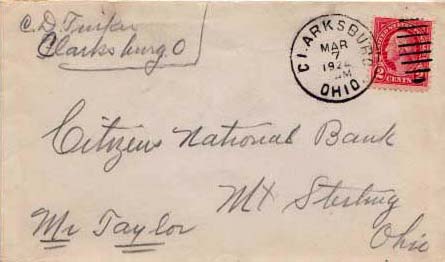 C. D.
Clarksburg. O
CLARKSBURG
MAR
7
AM
OHIO.
2 CENTS 2
Citizens National Bank
Mt Sterling
Ohio
Mr Taylor